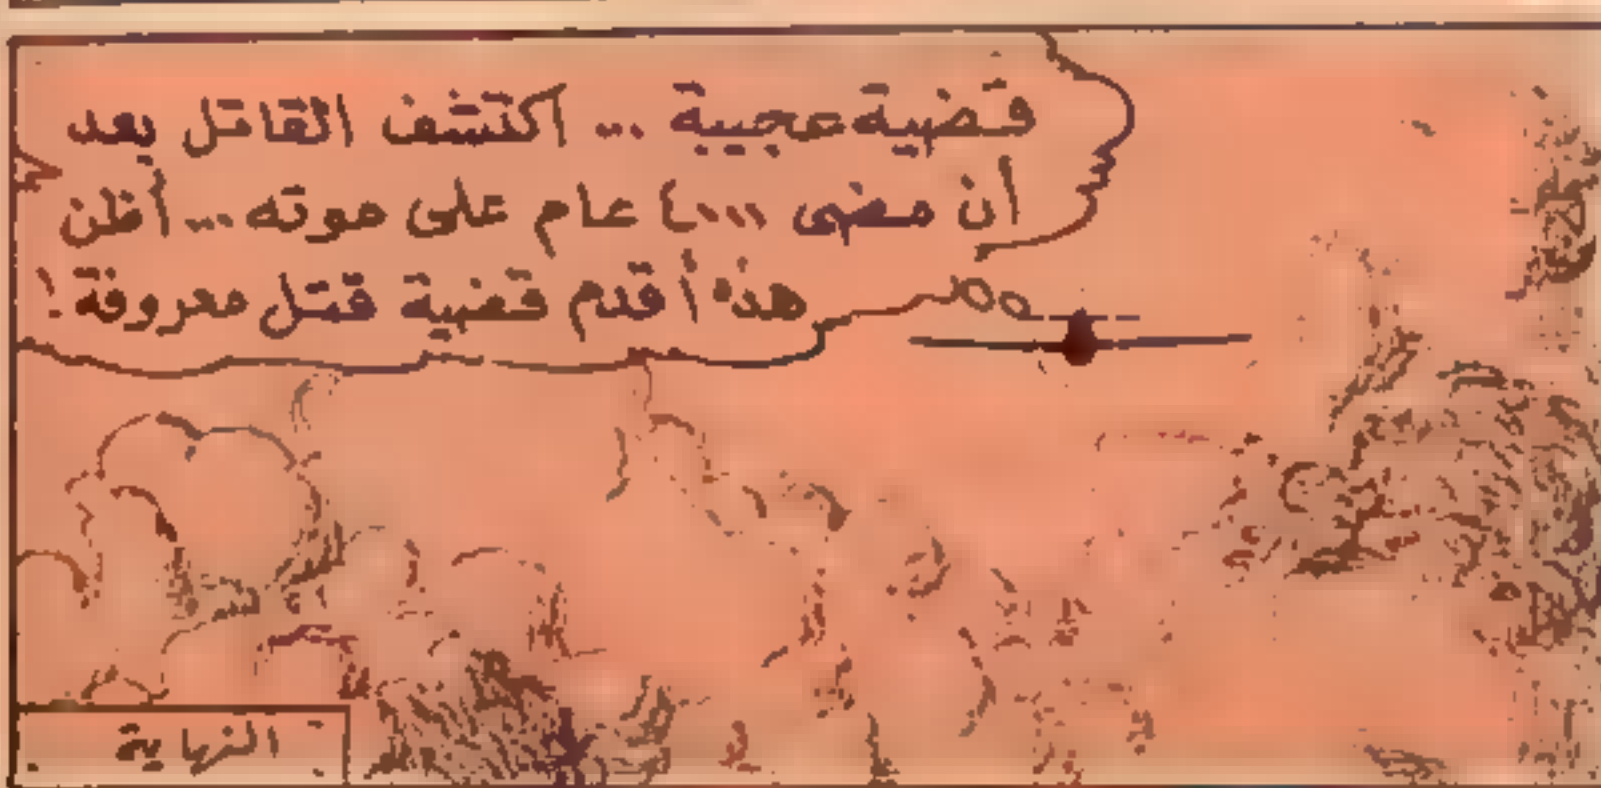 قضية عجيبة ... اكتشف القاتل بعد
أن مضى ٤٠٠٠ عام على موته ... أظن
هذه أقدم قضية قتل معروفة !
النهاية